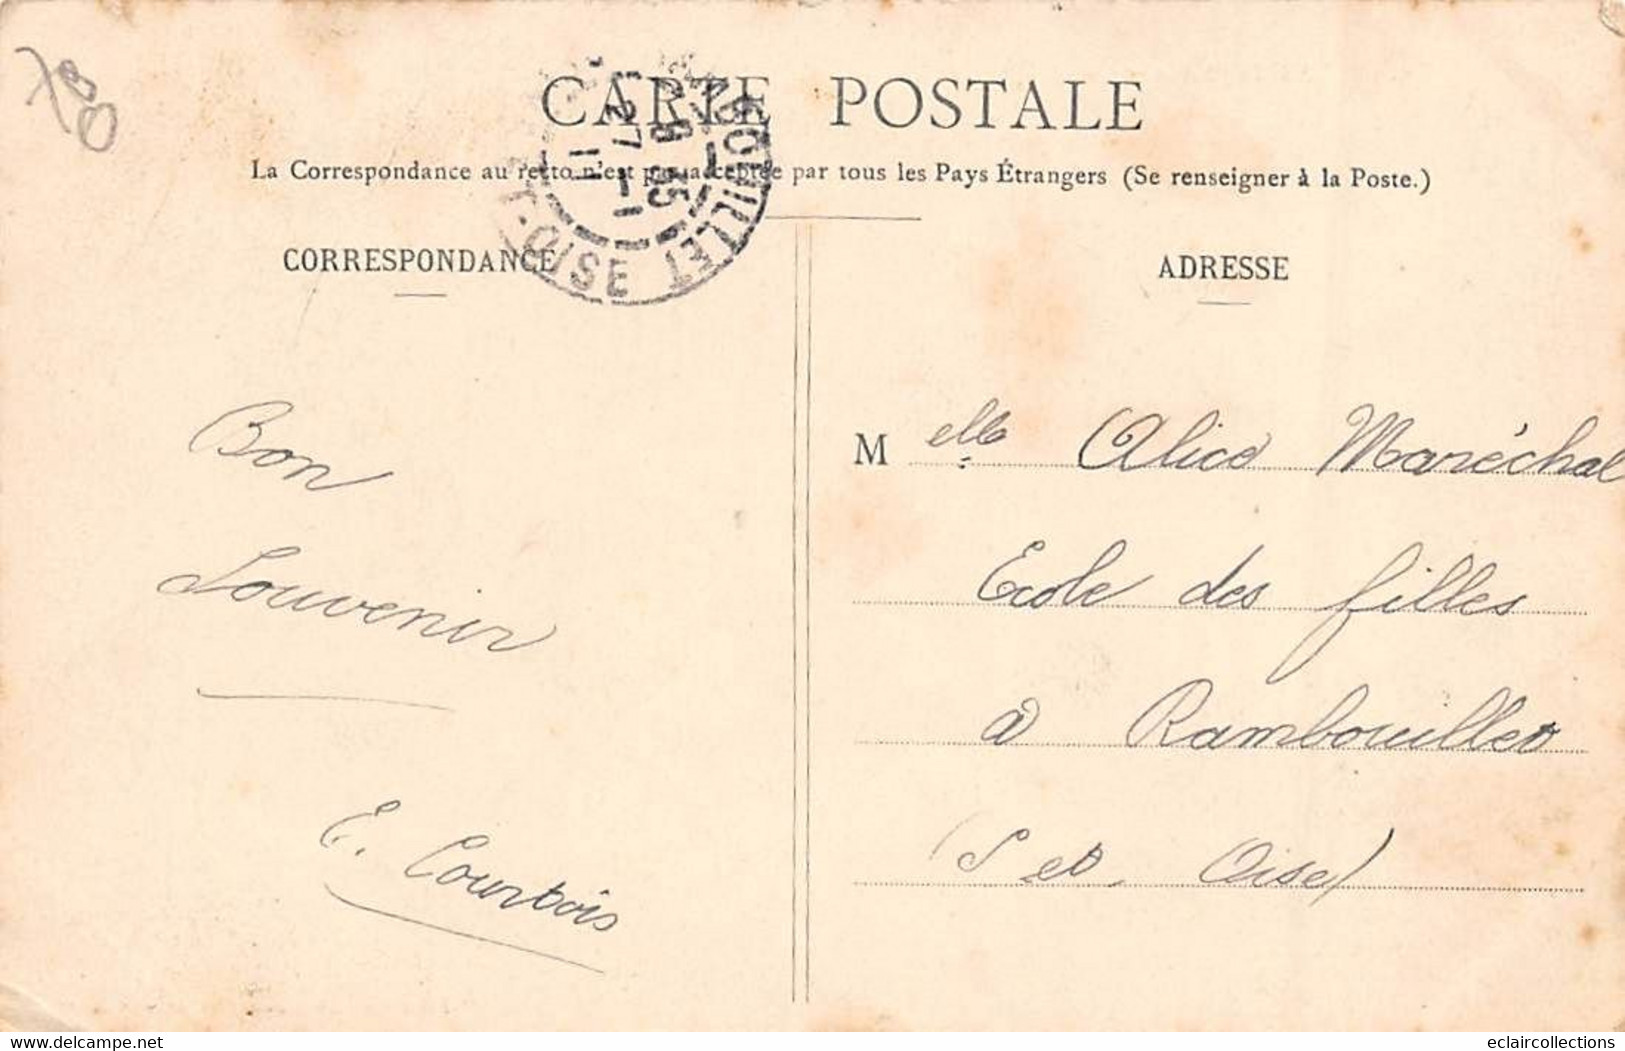 CARTE POSTALE
La Correspondance au recto n'est pas acceptée par tous les Pays Étrangers (Se renseigner à la Poste.)
RAMBOUILLET
27 - 1
11
OISE
CORRESPONDANCE
Bon
Souvenir
E. Courbois
ADRESSE
Melle Alice Maréchal
Ecole des filles
à Rambouillet
(S et Oise)
Delcampe.net
eclaircollections